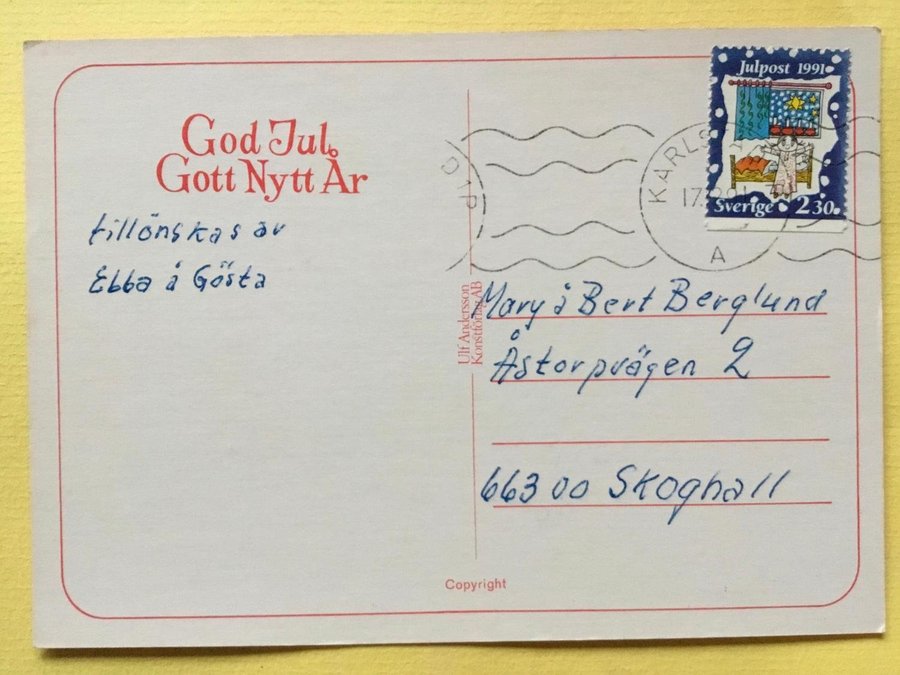 God Jul
Gott Nytt År
tillönskas av
Ebba å Gösta
Julpost 1991
Sverige 2 30
KARLS
17
A
D1P
Ulf Andersson
Konstförlag AB
Mary å Bert Berglund
Åstorpvägen 2
663 00 Skoghall
Copyright